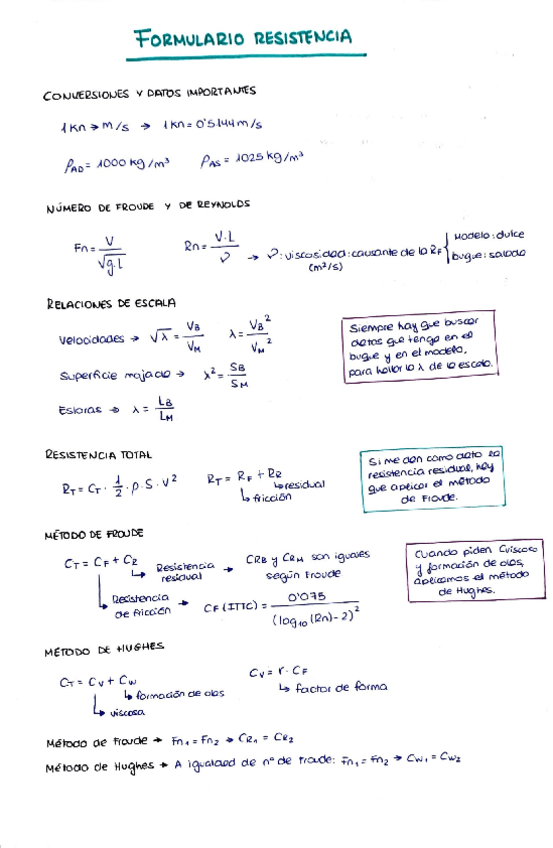 FORMULARIO RESISTENCIA
CONVERSIONES Y DATOS IMPORTANTES
1 Kn → m/s → 1 Kn = 0'5144 m/s
ρAD = 1000 kg/m³ ρAS = 1025 kg/m³
NÚMERO DE FROUDE Y DE REYNOLDS
Fn = V / √g·L Rn = V·L / ν → ν: viscosidad: causante de la RF { Modelo: dulce
(m²/s) buque: salada
RELACIONES DE ESCALA
Velocidades → √λ = VB / VM λ = VB² / VM²
Superficie mojada → λ² = SB / SM
Esloras → λ = LB / LM
Siempre hay que buscar
datos que tenga en el
buque y en el modelo,
para hallar la λ de la escala.
RESISTENCIA TOTAL
RT = CT · 1/2 · ρ · S · V² RT = RF + RR
↳ residual
↳ fricción
Si me dan como dato la
resistencia residual, hay
que aplicar el método
de Froude.
MÉTODO DE FROUDE
CT = CF + CR
↳ Resistencia residual → CRB y CRM son iguales según Froude
↳ Resistencia de fricción → CF (ITTC) = 0'075 / (log10 (Rn) - 2)²
Cuando piden Cviscoso
y formación de olas,
aplicamos el método
de Hughes.
MÉTODO DE HUGHES
CT = CV + CW CV = r · CF
↳ formación de olas ↳ factor de forma
↳ viscosa
Método de Froude → Fn1 = Fn2 → CR1 = CR2
Método de Hughes → A igualdad de nº de Froude: Fn1 = Fn2 → CW1 = CW2